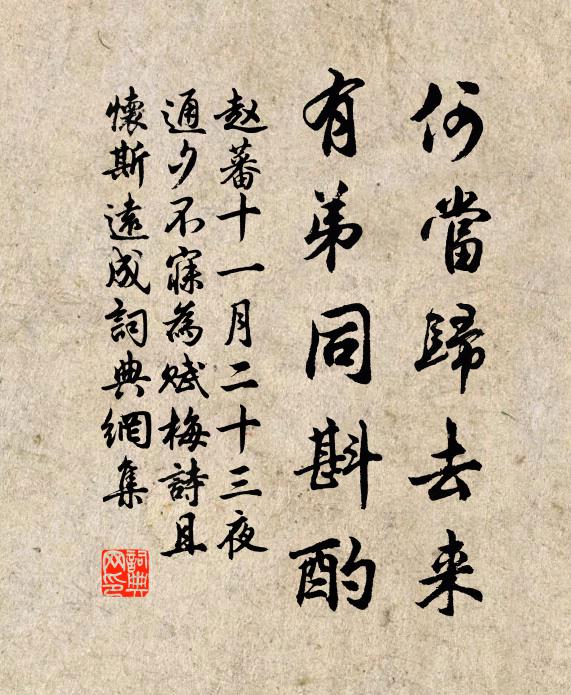 何當歸去来
有弟同斟酌
赵蕃十一月二十三夜
通夕不寐為赋梅詩且
懷斯遠成詞典網集
詞典
网印